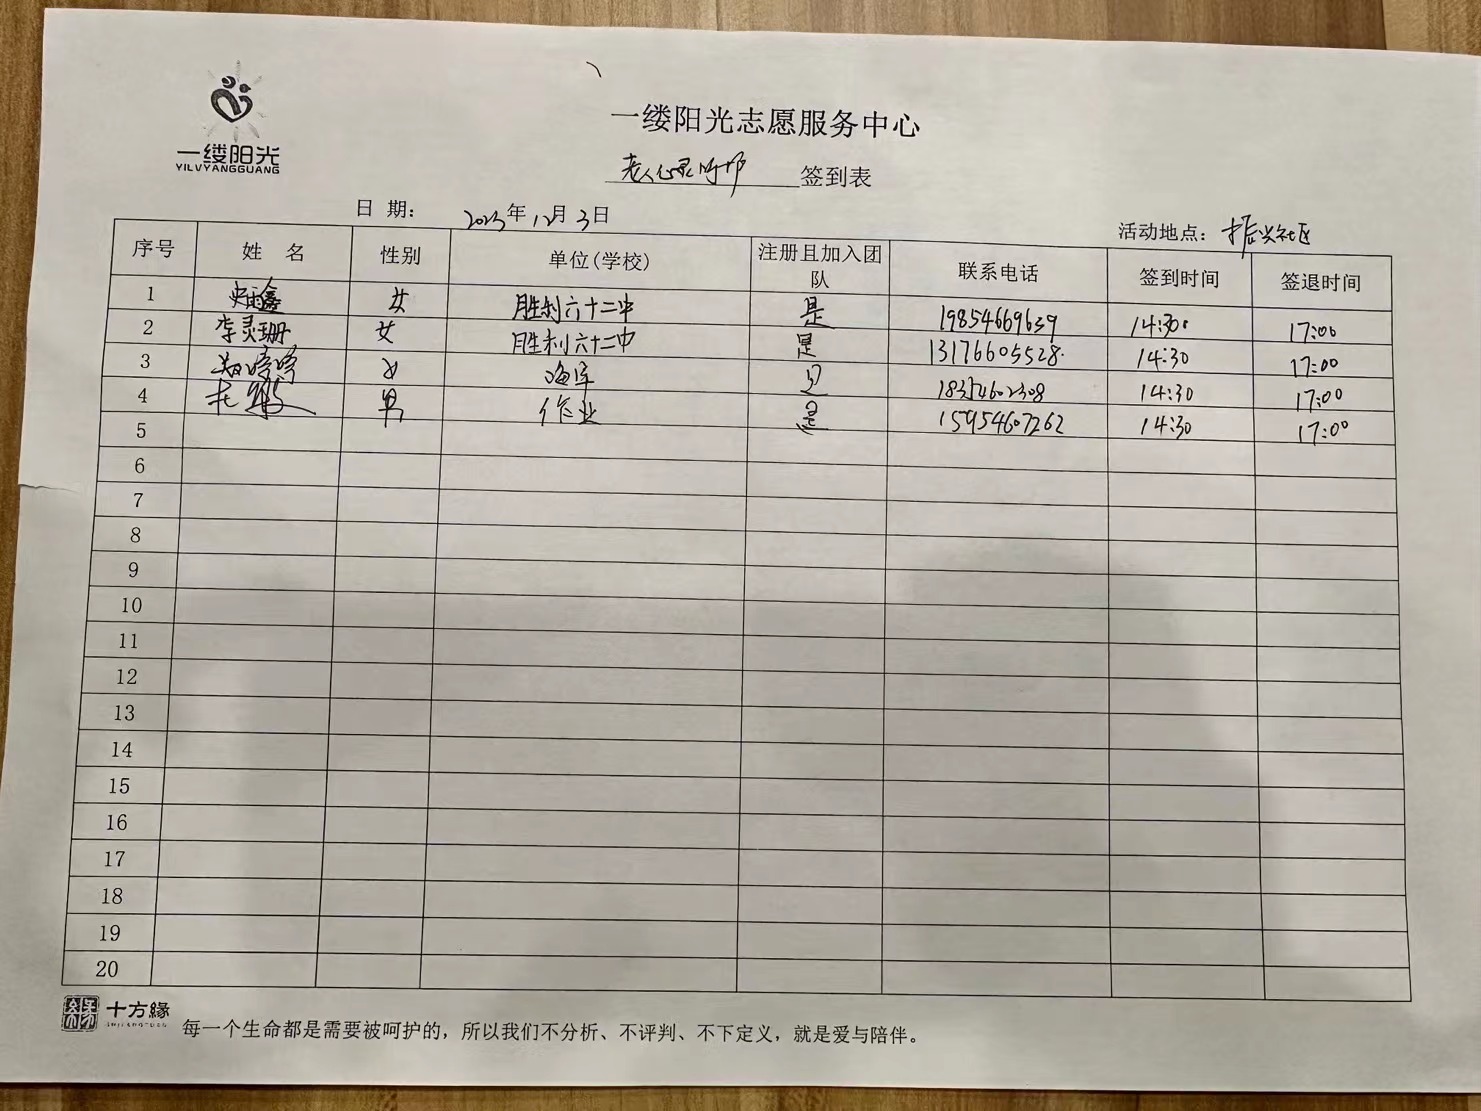 一缕阳光
YILVYANGGUANG
一缕阳光志愿服务中心
老人心灵呵护 签到表
日 期： 2023年12月3日
活动地点：振兴社区
序号 姓 名 性别 单位(学校) 注册且加入团队 联系电话 签到时间 签退时间
1 史雨鑫 女 胜利六十二中 是 19854669639 14:30 17:00
2 李灵珊 女 胜利六十二中 是 13176605528 14:30 17:00
3 女 海洋 是 18354602308 14:30 17:00
4 男 作业 是 15954607262 14:30 17:00
5
6
7
8
9
10
11
12
13
14
15
16
17
18
19
20
十方緣
每一个生命都是需要被呵护的，所以我们不分析、不评判、不下定义，就是爱与陪伴。